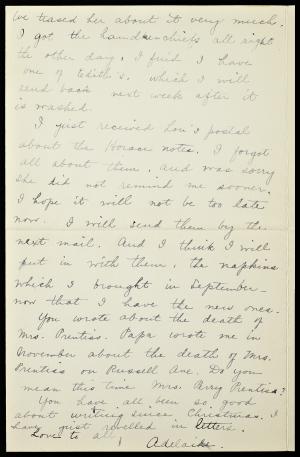 we teased her about it very much.
I got the handkerchiefs all right
the other day. I find I have
one of Edith's, which I will
send back next week after it
is washed.
I just received Lou's postal
about the Horace notes. I forgot
all about them, and was sorry
she did not remind me sooner.
I hope it will not be too late
now. I will send them by the
next mail. And I think I will
put in with them, the napkins
which I brought in September–
now that I have the new ones.
You wrote about the death of
Mrs. Prentiss. Papa wrote me in
November about the death of Mrs.
Prentiss on Russell Ave. Do you
mean this time Mrs. Prentiss?
You have all been so good
about writing since Christmas. I
have just revelled in letters.
Love to all
Adelaide.